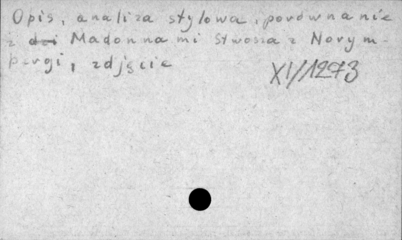 Opis, analiza stylowa, porównanie
z Madonnami Stwosza z Norym-
bergi, zdjęcie
XI/1273